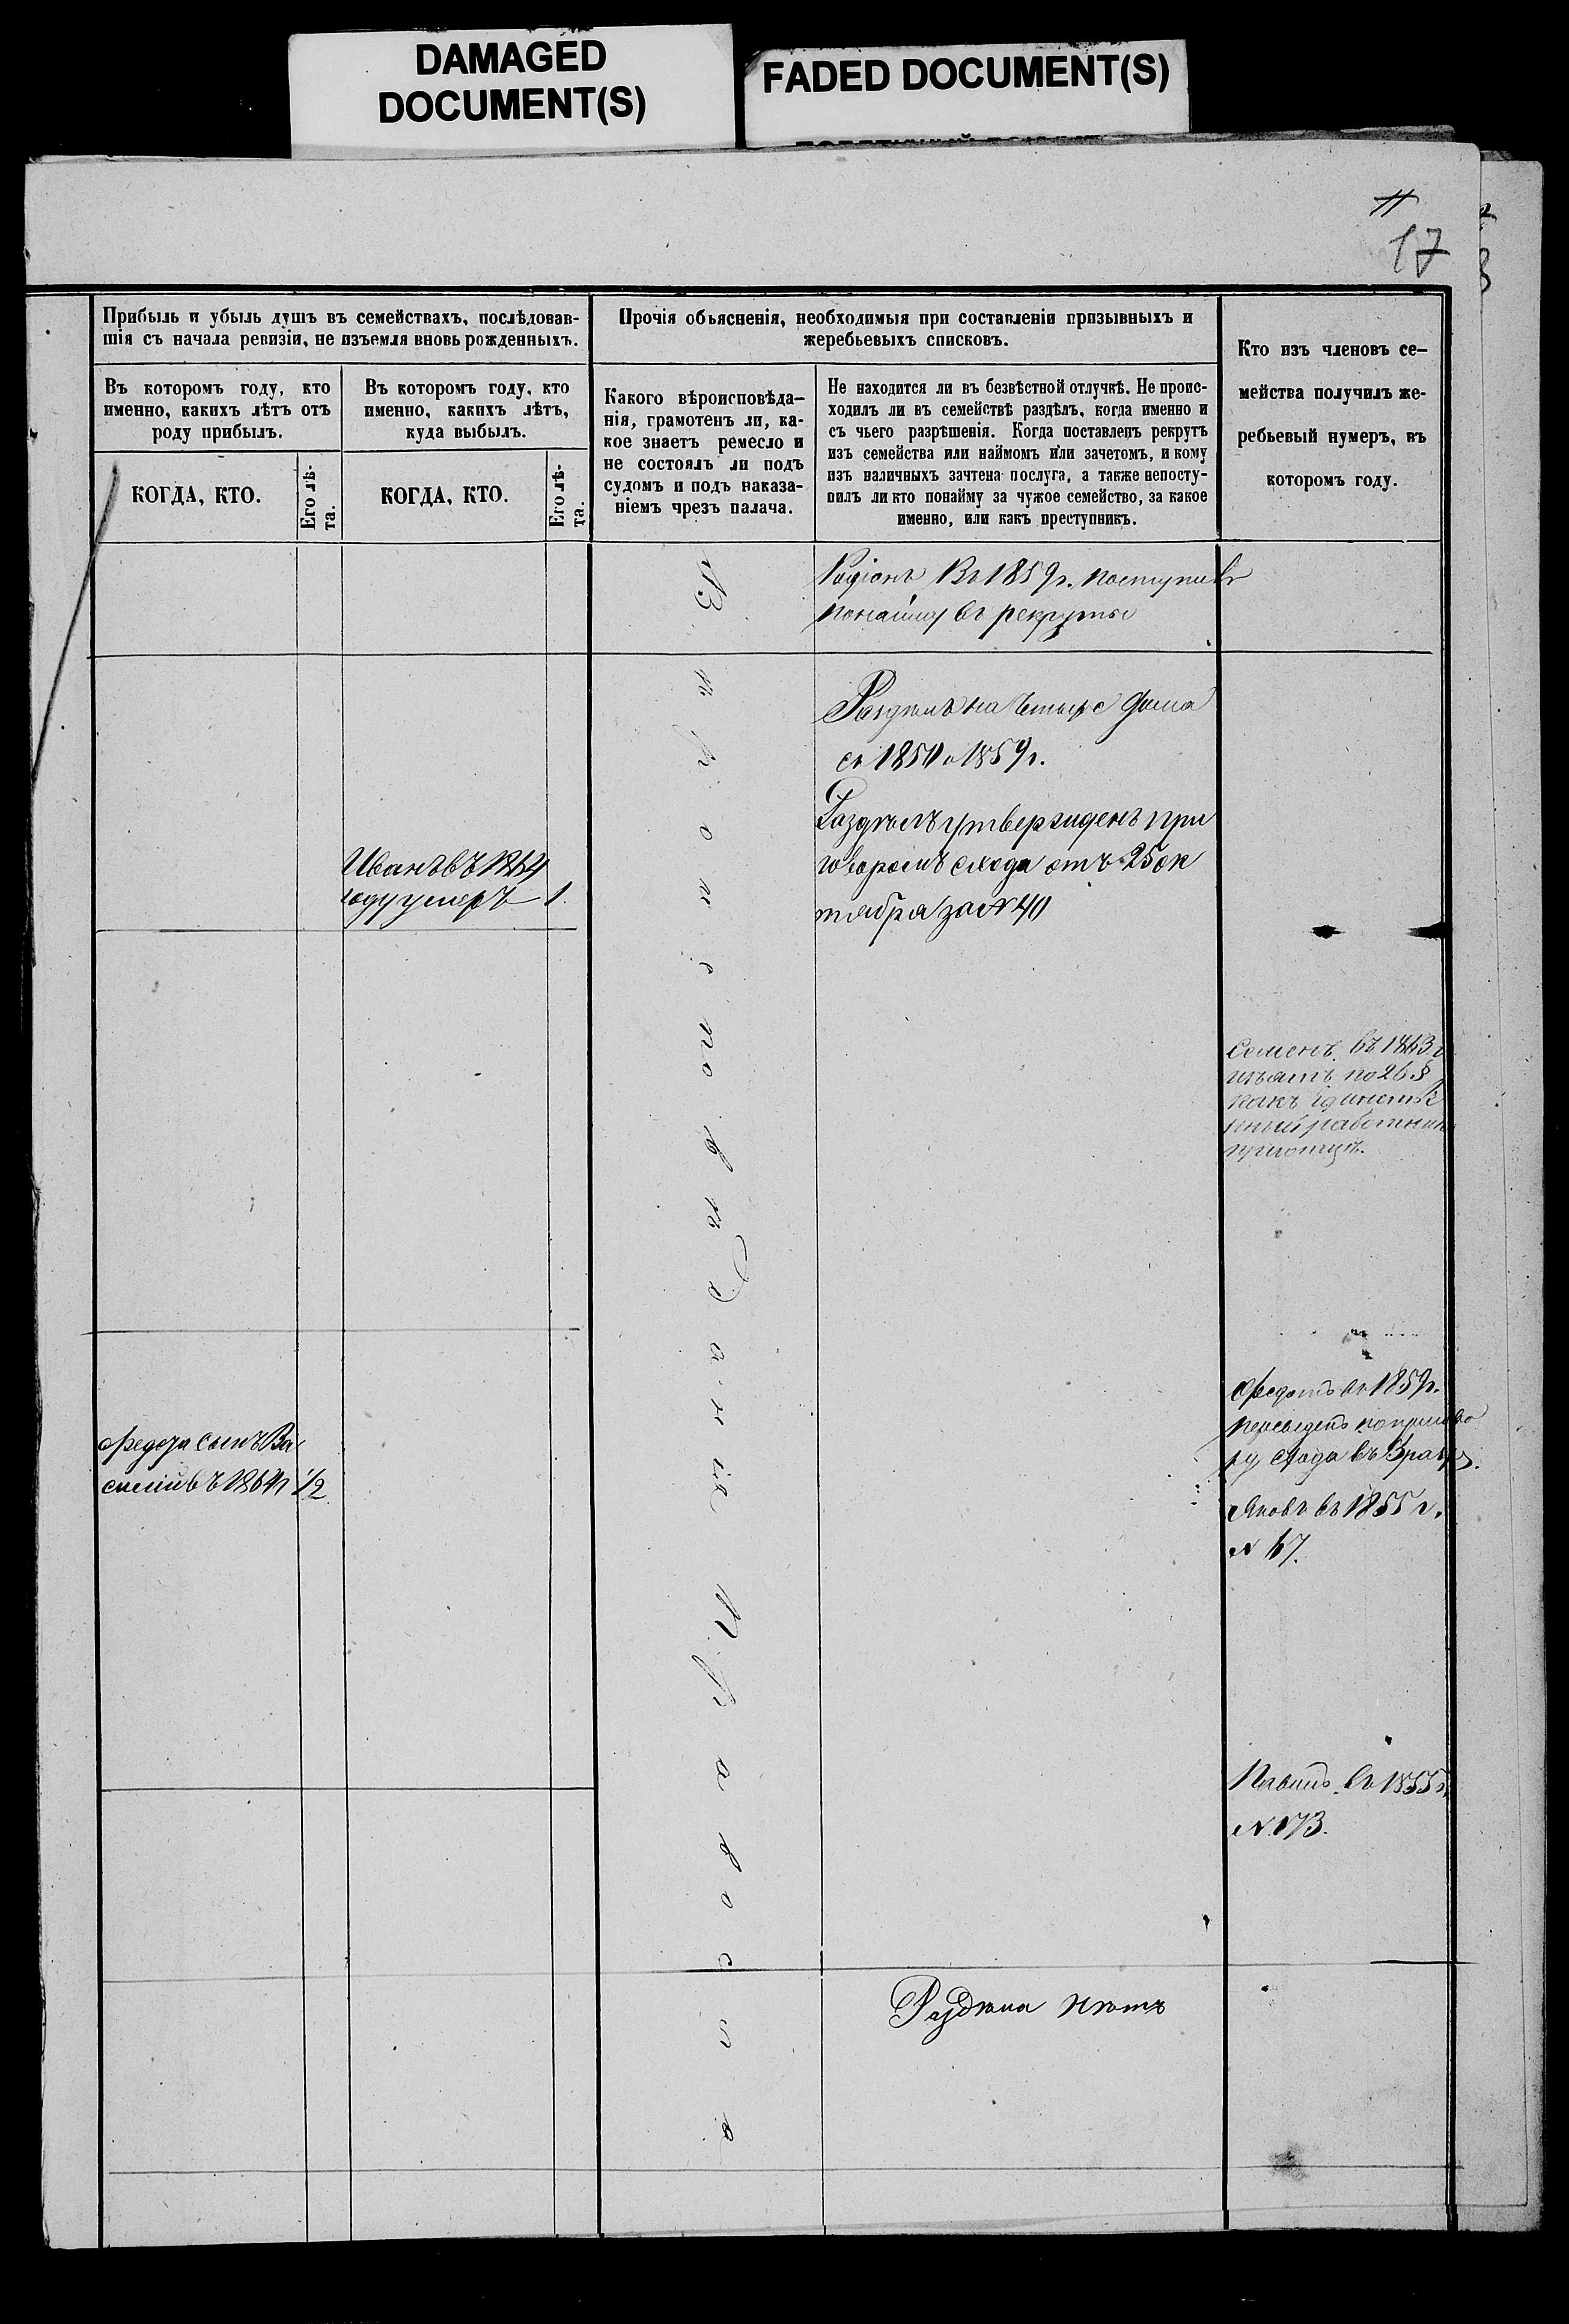 DAMAGED
DOCUMENT(S)
FADED DOCUMENT(S)
11
17
Прибыль и убыль душъ въ семействахъ, послѣдовав-
шія съ начала ревизіи, не изъемля вновь рожденныхъ.
Въ которомъ году, кто
именно, какихъ лѣтъ отъ
роду прибылъ.
КОГДА, КТО.
Его лѣ-
та.
Въ которомъ году, кто
именно, какихъ лѣтъ,
куда выбылъ.
КОГДА, КТО.
Его лѣ-
та.
Прочія объясненія, необходимыя при составленіи призывныхъ и
жеребьевыхъ списковъ.
Какого вѣроисповѣда-
нія, грамотенъ ли, ка-
кое знаетъ ремесло и
не состоялъ ли подъ
судомъ и подъ наказа-
ніемъ чрезъ палача.
Не находится ли въ безвѣстной отлучкѣ. Не проис-
ходилъ ли въ семействѣ раздѣлъ, когда именно и
съ чьего разрѣшенія. Когда поставленъ рекрутъ
изъ семейства или наймомъ или зачетомъ, и кому
изъ наличныхъ зачтена послуга, а также непосту-
пилъ ли кто понайму за чужое семейство, за какое
именно, или какъ преступникъ.
Кто изъ членовъ се-
мейства получилъ же-
ребьевый нумеръ, въ
которомъ году.
Родіонъ Въ 1859 г. поступилъ
понайму въ рекруты
Раздѣлъ на четыре дома
съ 1850 и 1859 г.
Раздѣлъ утвержденъ при
говоромъ схода отъ 25 ок
тября за № 40
Иванъ въ 1864
году умеръ 1.
Вѣроисповѣданія Православ
Семенъ въ 1863 г
изъятъ по 26 §
какъ единстве
нный работникъ
при отцѣ.
Федотъ въ 1859 г.
переведенъ по пригово
ру схода въ 3 разр.
Яковъ въ 1855 г.
№ 67.
Федора сынъ Ва
силій въ 1864 г 1/2
въ 1855 г.
№ 173.
Раздѣла нѣтъ